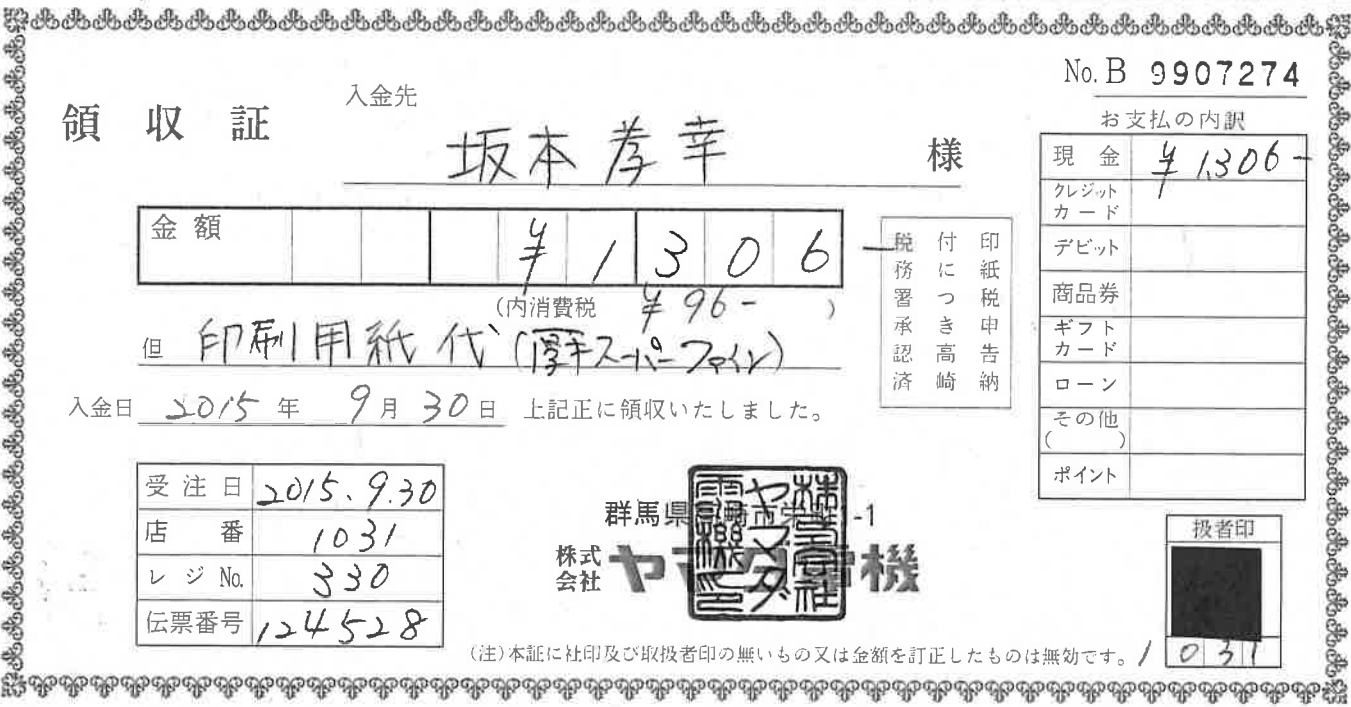 No. B 9907274
領収証
入金先
坂本孝幸 様
金額 ¥1306-
(内消費税 ¥96- )
但 印刷用紙代(厚手スーパーファイン)
入金日 2015年 9月30日 上記正に領収いたしました。
印紙税申告納
付につき高崎
税務署承認済
お支払の内訳
現金 ¥1,306-
クレジットカード
デビット
商品券
ギフトカード
ローン
その他
( )
ポイント
受注日 2015.9.30
店番 1031
レジNo. 330
伝票番号 124528
群馬県 -1
株式会社 ヤマダ電機
株式会社ヤマダ電機之印
扱者印
1031
(注)本証に社印及び取扱者印の無いもの又は金額を訂正したものは無効です。